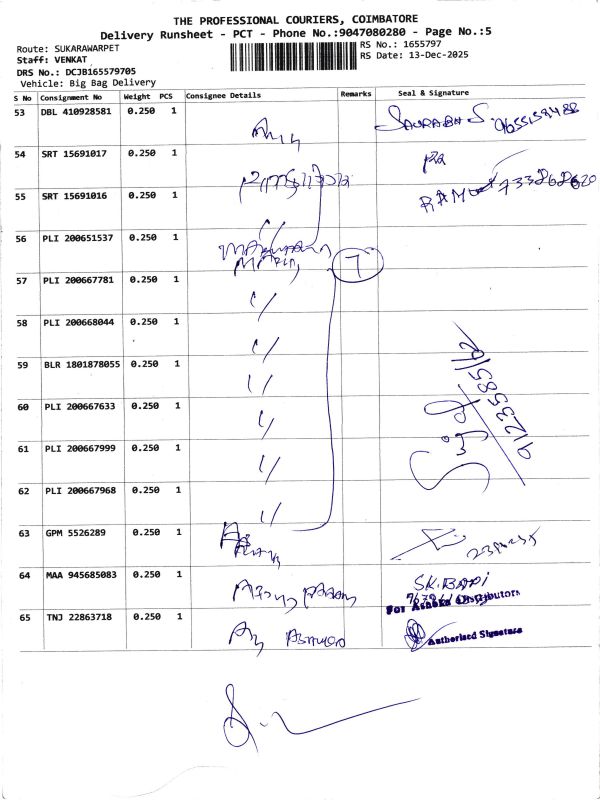 THE PROFESSIONAL COURIERS, COIMBATORE
Delivery Runsheet - PCT - Phone No.:9047080280 - Page No.:5
Route: SUKARAWARPET
RS No.: 1655797
Staff: VENKAT
RS Date: 13-Dec-2025
DRS No.: DCJB165579705
Vehicle: Big Bag Delivery
S No Consignment No Weight PCS Consignee Details Remarks Seal & Signature
53 DBL 410928581 0.250 1 SAURABH S.
54 SRT 15691017 0.250 1
55 SRT 15691016 0.250 1 RAM
56 PLI 200651537 0.250 1
57 PLI 200667781 0.250 1 7
58 PLI 200668044 0.250 1
59 BLR 1801878055 0.250 1
60 PLI 200667633 0.250 1
61 PLI 200667999 0.250 1
62 PLI 200667968 0.250 1
63 GPM 5526289 0.250 1
64 MAA 945685083 0.250 1 SK.BAPI
For Ashoka Distributors
65 TNJ 22863718 0.250 1
Authorised Signature